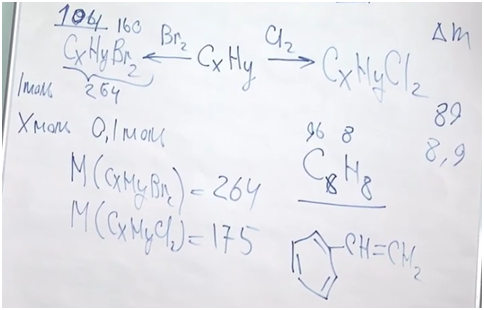 104 160
CxHyBr2 ←Br2 CxHy →Cl2 CxHyCl2 Δm
264
1моль 89
Xмоль 0,1моль 8,9
96 8
C8H8
M(CxHyBr2) = 264
M(CxHyCl2) = 175
CH=CH2